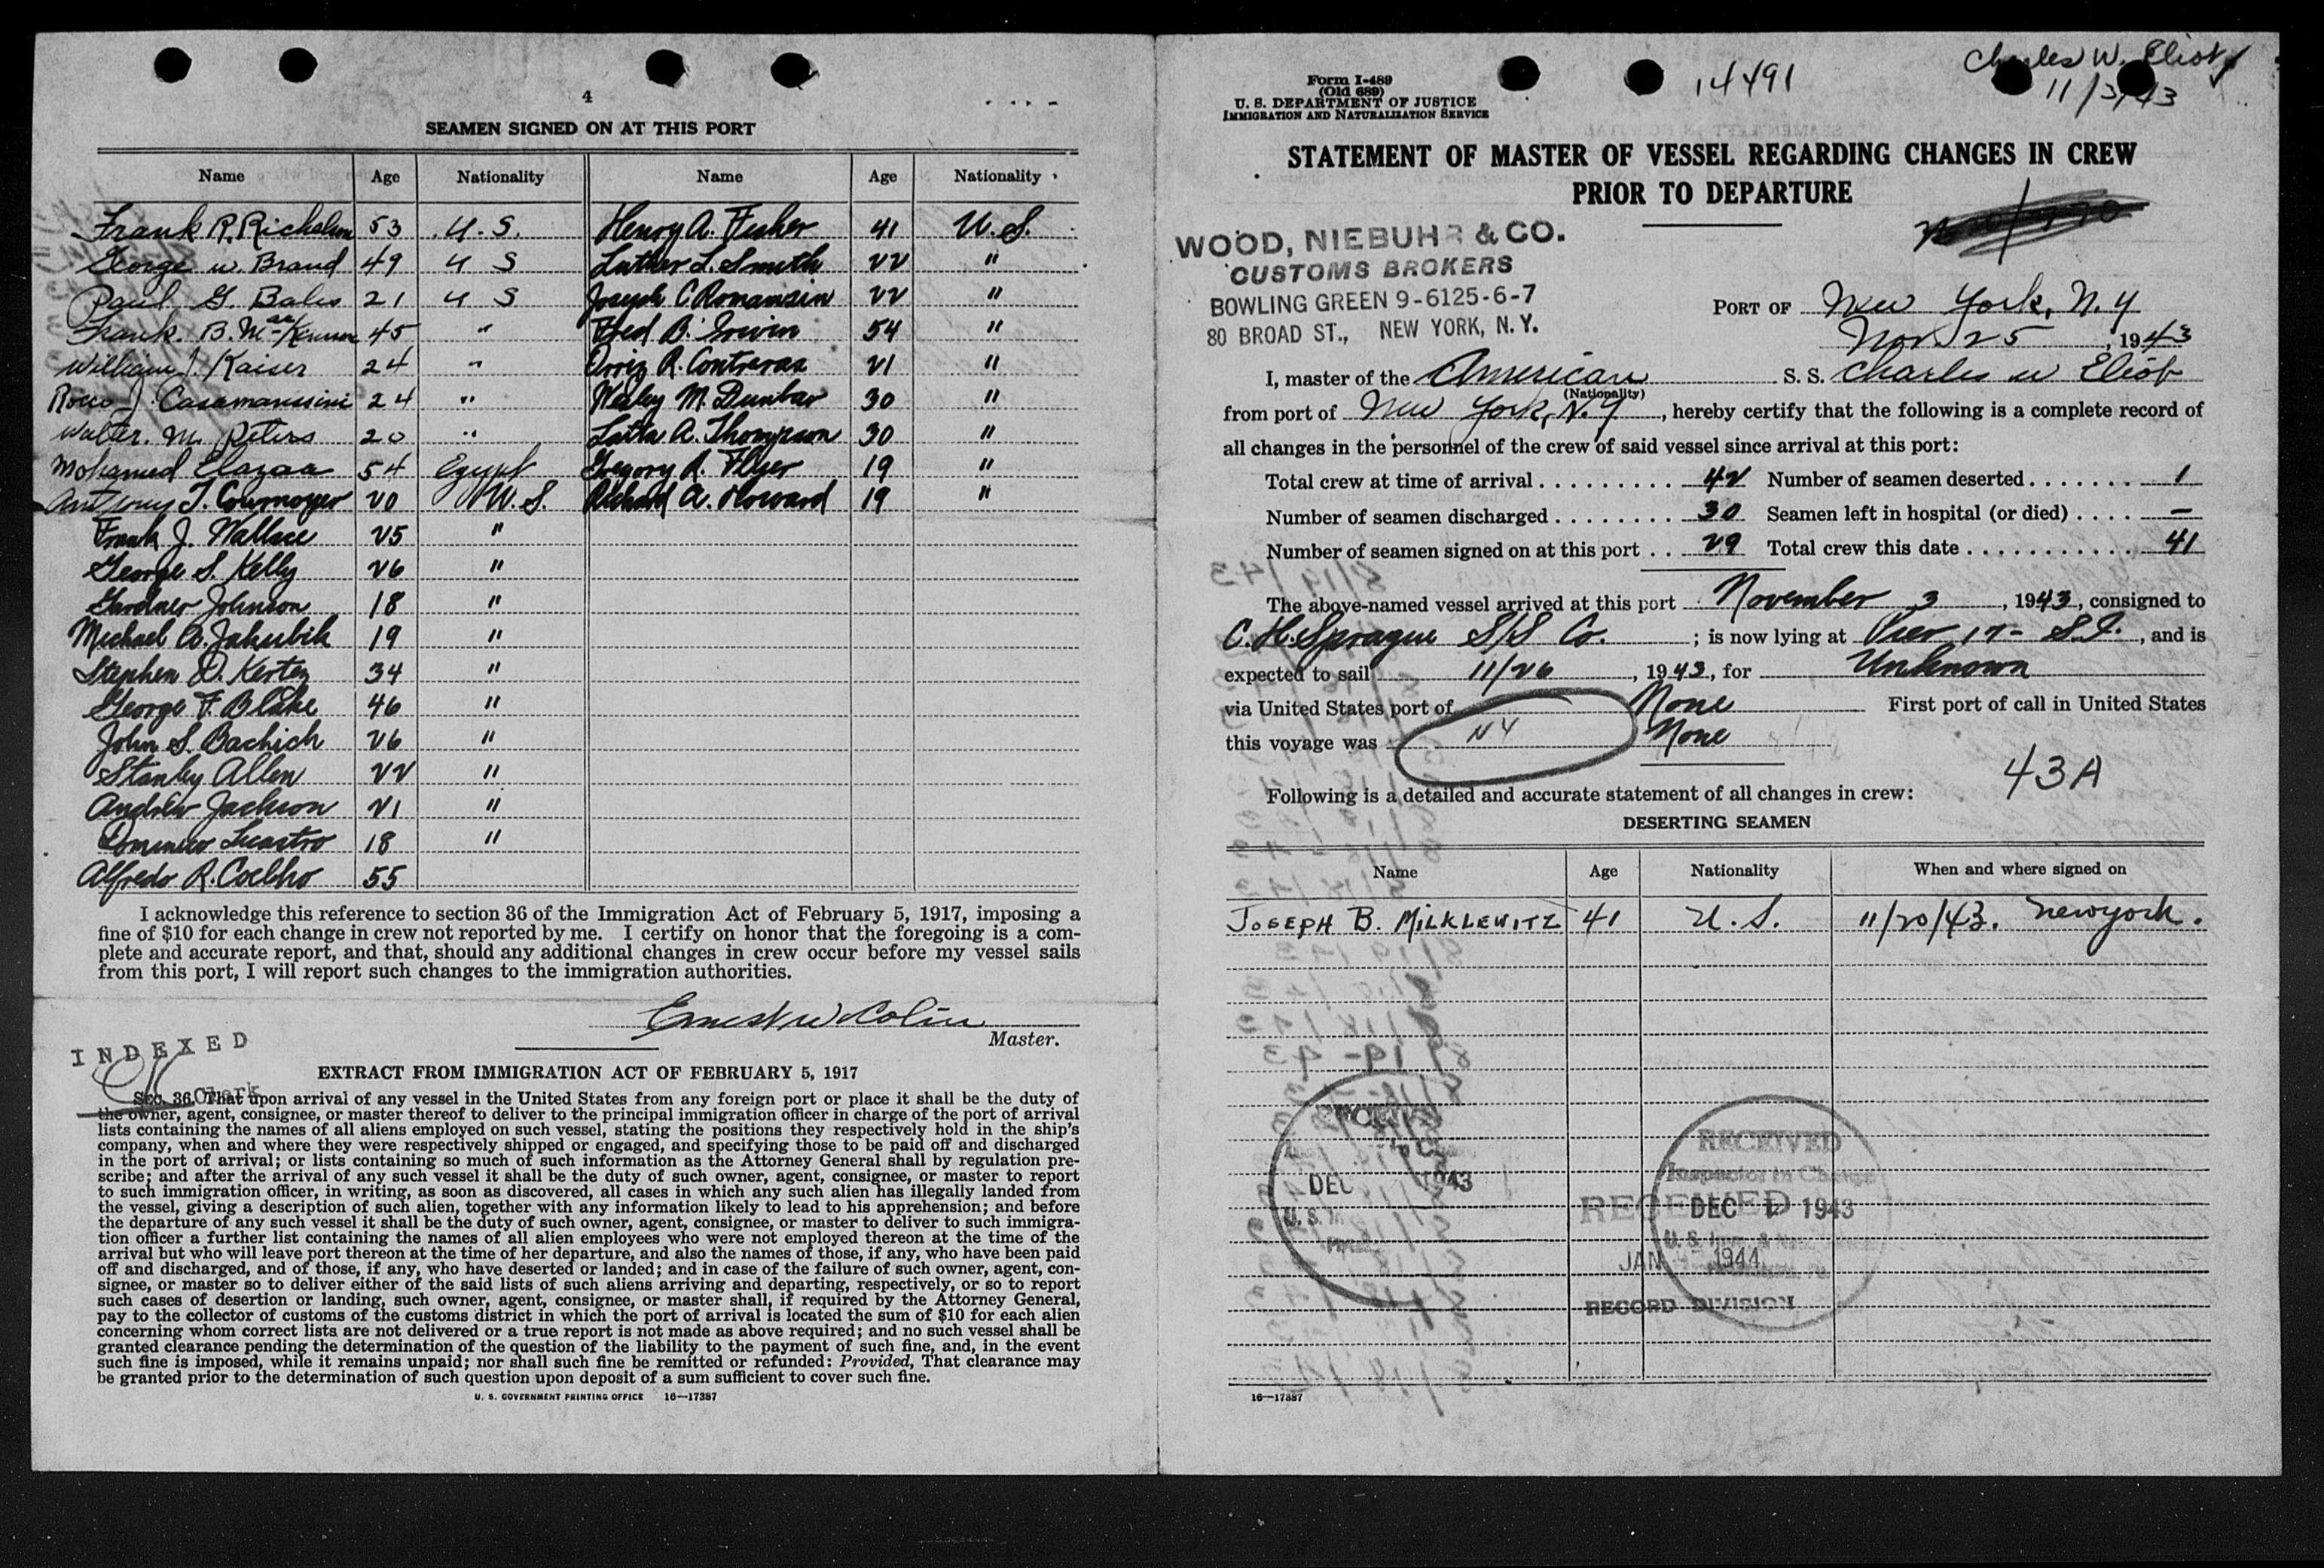 4
SEAMEN SIGNED ON AT THIS PORT
Name Age Nationality Name Age Nationality
Frank R. Richelson 53 U.S. Henry A. Fisher 41 U.S.
George W. Brand 49 U S Luther L. Smith 22 "
Paul G. Bales 21 U S Joseph C. Romansin 22 "
Frank. B. 45 " Fred B. Irwin 54 "
William J. Kaiser 24 " R. Contreras 21 "
Rocco J. Casamanssini 24 " Wesley M. Dunbar 30 "
Walter. M. Peters 20 " Latta A. Thompson 30 "
Mohamed Elazaa 54 Egypt Gregory R. 19 "
Anthony T. Cournoyer 20 U.S. Richard A. Howard 19 "
Frank J. Wallace 25 "
George S. Kelly 26 "
Gardner Johnson 18 "
Michael A. Jakubik 19 "
Stephen D. Kertez 34 "
George F. Blake 46 "
John S. Bachich 26 "
Stanley Allen 22 "
Andrew Jackson 21 "
Lucastro 18 "
Alfredo R. Coelho 55
I acknowledge this reference to section 36 of the Immigration Act of February 5, 1917, imposing a
fine of $10 for each change in crew not reported by me. I certify on honor that the foregoing is a com-
plete and accurate report, and that, should any additional changes in crew occur before my vessel sails
from this port, I will report such changes to the immigration authorities.
Ernest W Colin
Master.
INDEXED
Clerk
EXTRACT FROM IMMIGRATION ACT OF FEBRUARY 5, 1917
Sec. 36. That upon arrival of any vessel in the United States from any foreign port or place it shall be the duty of
the owner, agent, consignee, or master thereof to deliver to the principal immigration officer in charge of the port of arrival
lists containing the names of all aliens employed on such vessel, stating the positions they respectively hold in the ship's
company, when and where they were respectively shipped or engaged, and specifying those to be paid off and discharged
in the port of arrival; or lists containing so much of such information as the Attorney General shall by regulation pre-
scribe; and after the arrival of any such vessel it shall be the duty of such owner, agent, consignee, or master to report
to such immigration officer, in writing, as soon as discovered, all cases in which any such alien has illegally landed from
the vessel, giving a description of such alien, together with any information likely to lead to his apprehension; and before
the departure of any such vessel it shall be the duty of such owner, agent, consignee, or master to deliver to such immigra-
tion officer a further list containing the names of all alien employees who were not employed thereon at the time of the
arrival but who will leave port thereon at the time of her departure, and also the names of those, if any, who have been paid
off and discharged, and of those, if any, who have deserted or landed; and in case of the failure of such owner, agent, con-
signee, or master so to deliver either of the said lists of such aliens arriving and departing, respectively, or so to report
such cases of desertion or landing, such owner, agent, consignee, or master shall, if required by the Attorney General,
pay to the collector of customs of the customs district in which the port of arrival is located the sum of $10 for each alien
concerning whom correct lists are not delivered or a true report is not made as above required; and no such vessel shall be
granted clearance pending the determination of the question of the liability to the payment of such fine, and, in the event
such fine is imposed, while it remains unpaid; nor shall such fine be remitted or refunded: Provided, That clearance may
be granted prior to the determination of such question upon deposit of a sum sufficient to cover such fine.
U. S. GOVERNMENT PRINTING OFFICE 16—17387
Form I-489
(Old 689)
U. S. DEPARTMENT OF JUSTICE
IMMIGRATION AND NATURALIZATION SERVICE
14491
Charles W. Eliot
11/3/43
STATEMENT OF MASTER OF VESSEL REGARDING CHANGES IN CREW
PRIOR TO DEPARTURE
WOOD, NIEBUHR & CO.
CUSTOMS BROKERS
BOWLING GREEN 9-6125-6-7
80 BROAD ST., NEW YORK, N. Y.
PORT OF New York, N.Y
Nov 25, 1943
I, master of the American S. S. Charles W Eliot
(Nationality)
from port of New York, N.Y, hereby certify that the following is a complete record of
all changes in the personnel of the crew of said vessel since arrival at this port:
Total crew at time of arrival 42 Number of seamen deserted 1
Number of seamen discharged 30 Seamen left in hospital (or died) —
Number of seamen signed on at this port 29 Total crew this date 41
The above-named vessel arrived at this port November 3, 1943, consigned to
C. H. Sprague S/S Co. ; is now lying at Pier 17 - S.I., and is
expected to sail 11/26, 1943, for Unknown
via United States port of None First port of call in United States
this voyage was NY None
43A
Following is a detailed and accurate statement of all changes in crew:
DESERTING SEAMEN
Name Age Nationality When and where signed on
JOSEPH B. MILKLEWITZ 41 U.S. 11/20/43. New york.
DEC 1943
U. S.
RECEIVED
Inspector in Charge
DEC 1 1943
U. S.
RECEIVED
JAN 1944
RECORD DIVISION
16—17387